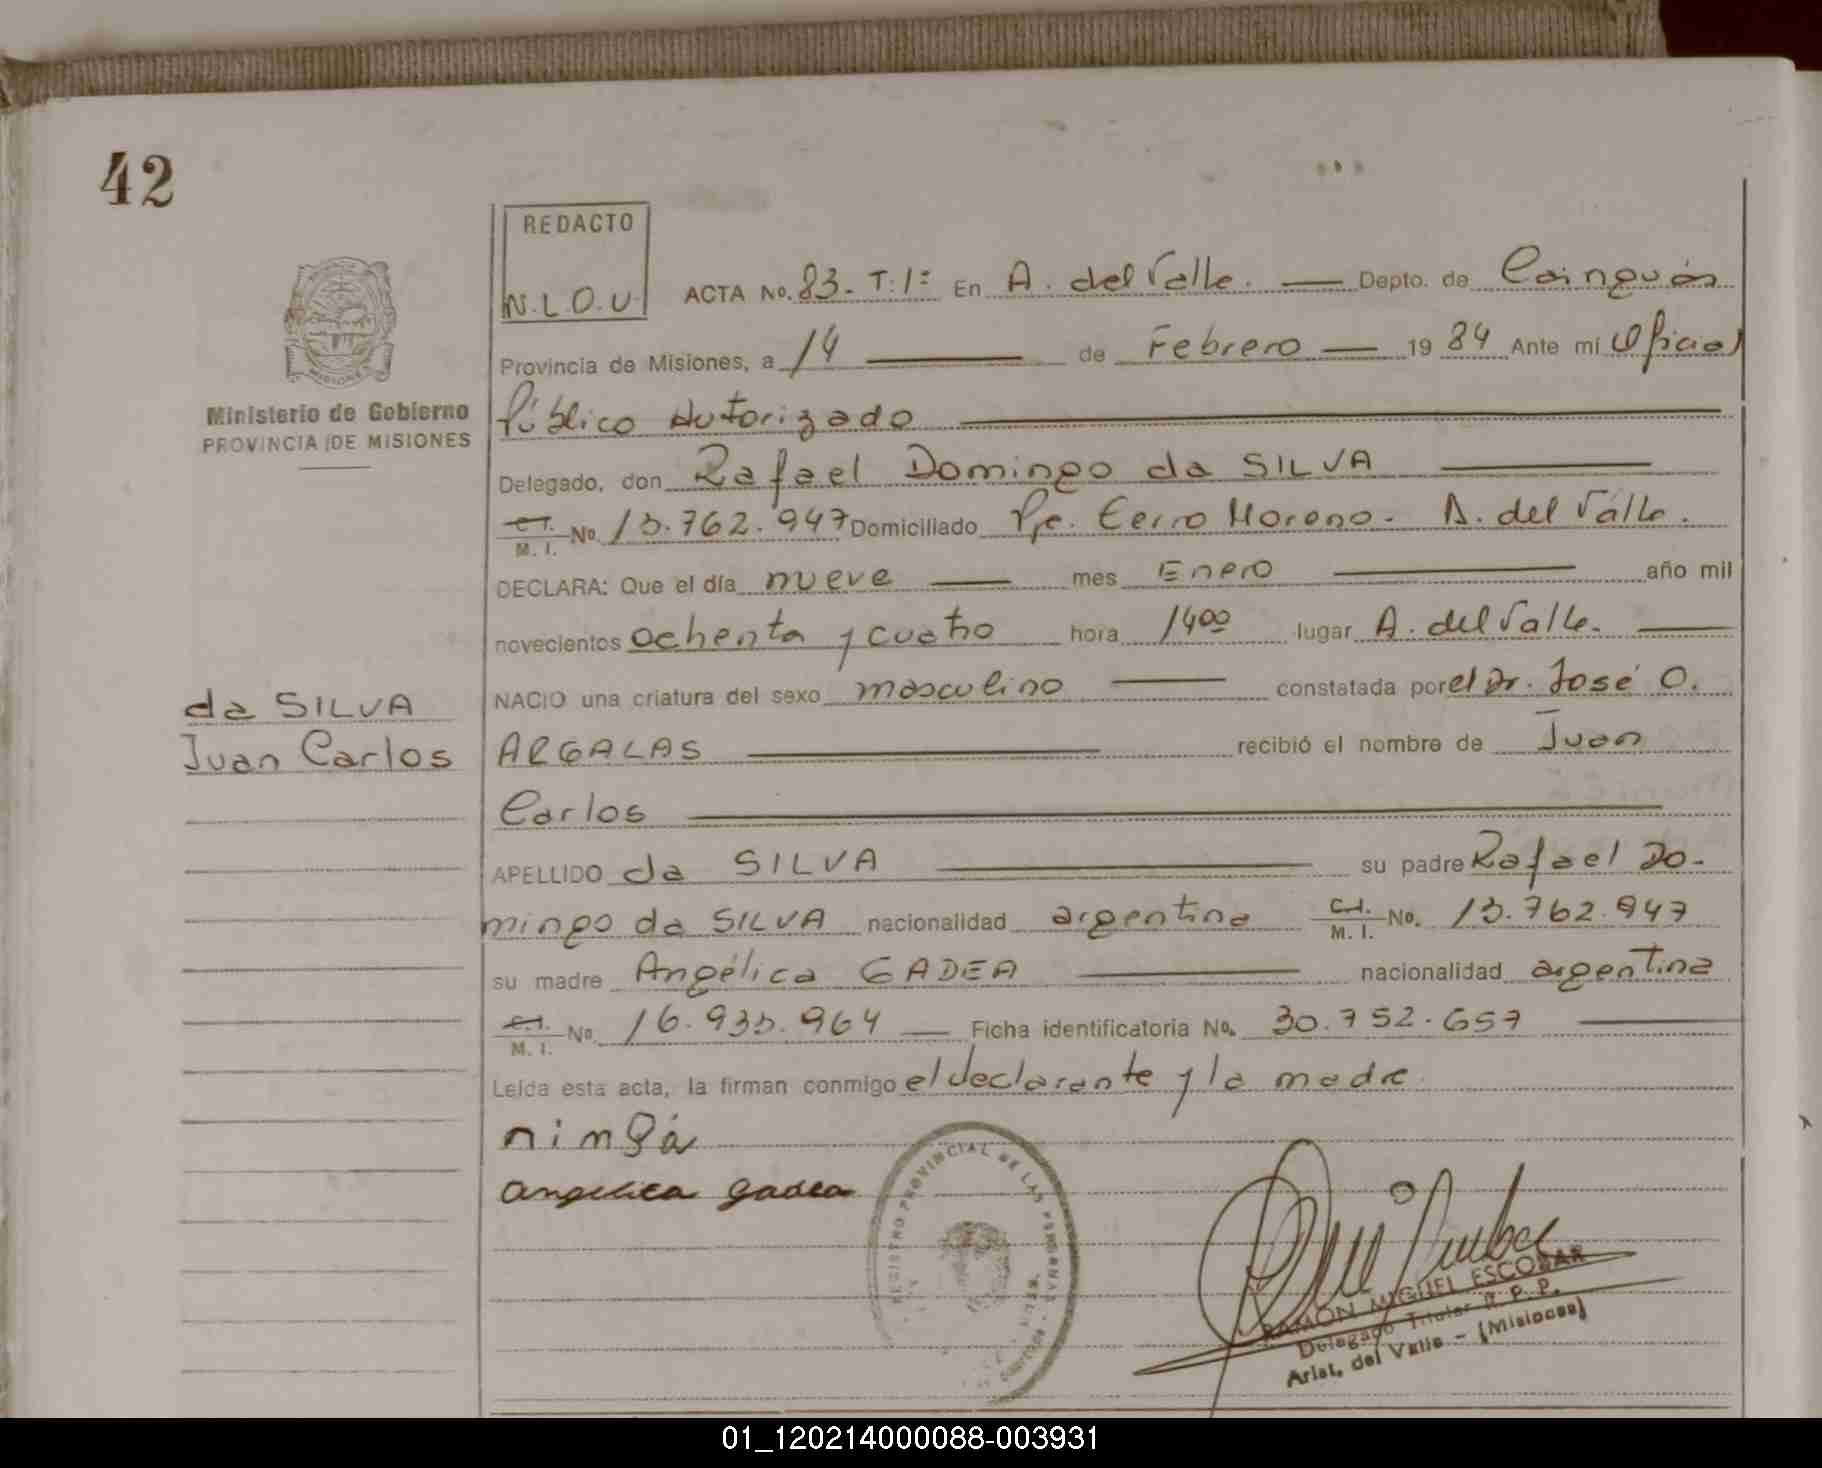 42
REDACTO
N.L.O.U.
ACTA No. 83. T: 1º En A. del Valle. Depto. de Cainguás
Provincia de Misiones, a 14 de Febrero 19 84 Ante mí Oficial
Público Autorizado
MISIONES
Ministerio de Gobierno
PROVINCIA DE MISIONES
Delegado, don Rafael Domingo da SILVA
C.I. M. I. No. 13.762.947 Domiciliado Pje. Cerro Moreno. A. del Valle.
DECLARA: Que el día nueve mes Enero año mil
novecientos ochenta y cuatro hora 14 00 lugar A. del Valle.
NACIO una criatura del sexo masculino constatada por el Dr. José O.
da SILVA
Juan Carlos
ARGALAS recibió el nombre de Juan
Carlos
APELLIDO da SILVA su padre Rafael Do-
mingo da SILVA nacionalidad argentina C.I. M. I. No. 13.762.947
su madre Angélica GADEA nacionalidad argentina
C.I. M. I. No. 16.935.964 Ficha identificatoria No. 30.752.657
Leída esta acta, la firman conmigo el declarante y la madre
angelica gadea
REGISTRO PROVINCIAL DE LAS PERSONAS
RAMON MIGUEL ESCOBAR
Delegado Titular R. P. P.
Arist. del Valle - (Misiones)
01_120214000088-003931